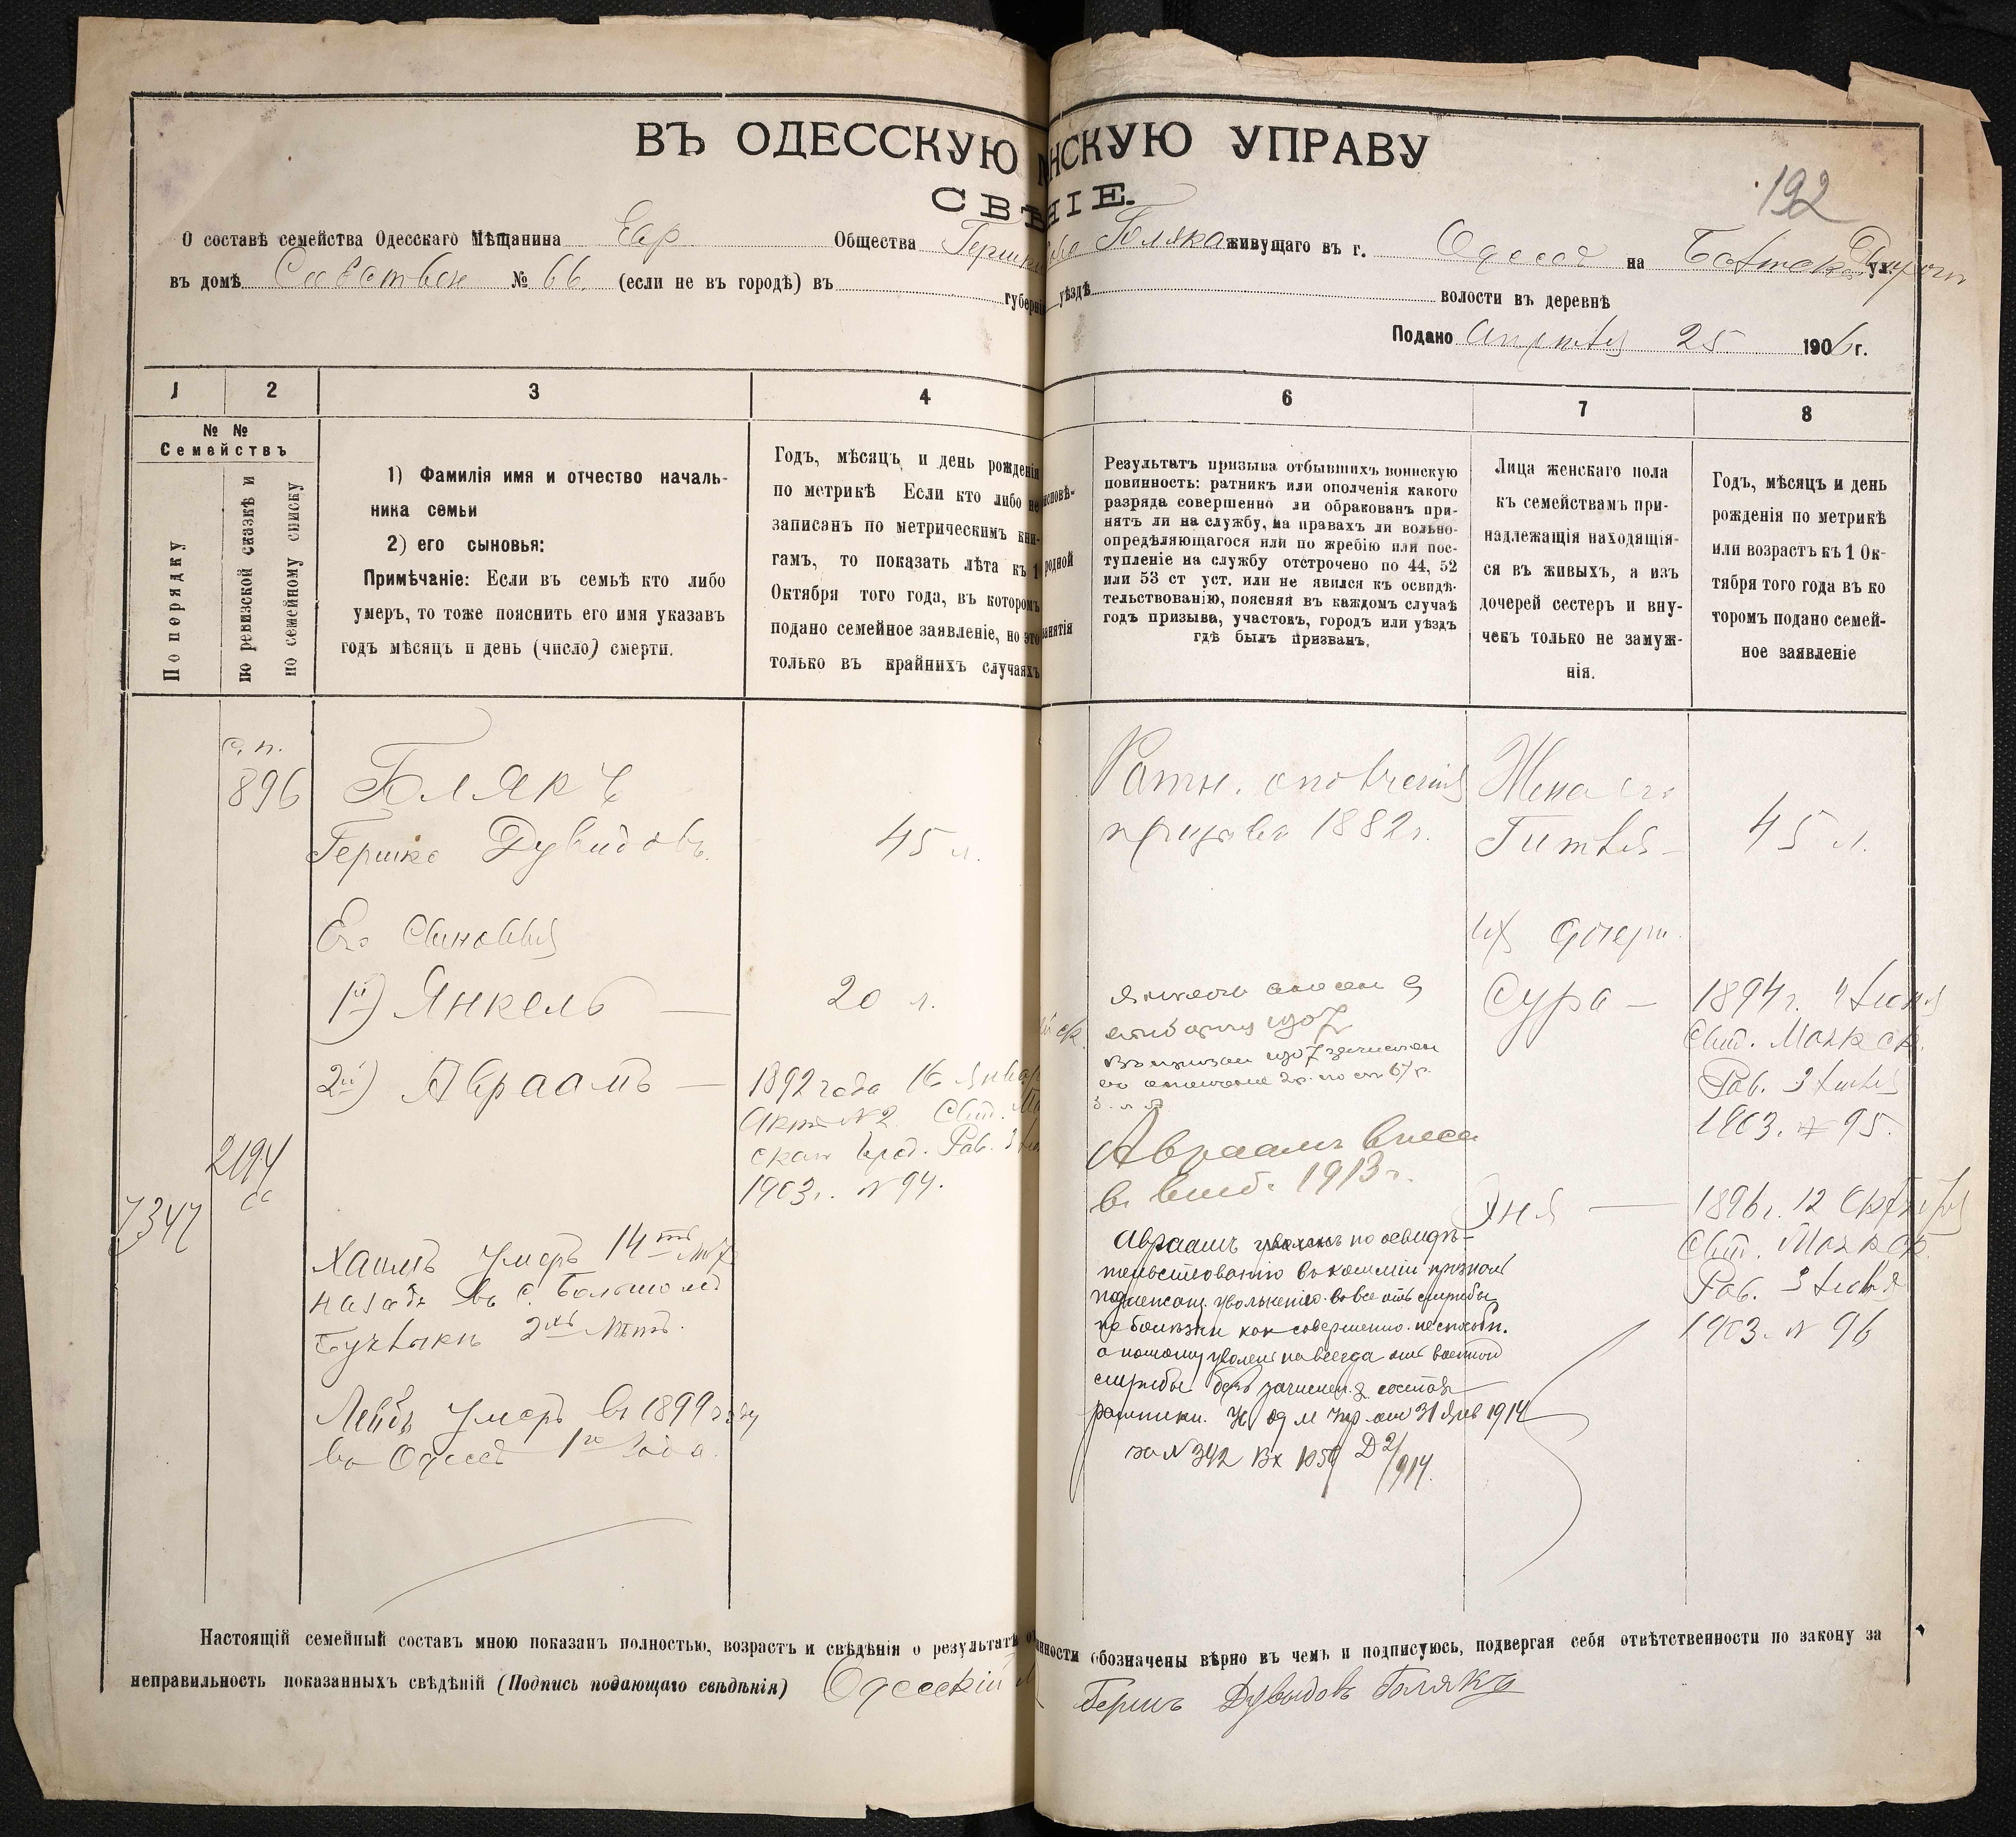 ВЪ ОДЕССКУЮ НСКУЮ УПРАВУ
СВѢ НІЕ.
192
О составѣ семейства Одесскаго Мѣщанина Евр Общества Гершк Бляка живущаго въ г. Одессѣ на ул.
въ домѣ Собствен № 66. (если не въ городѣ) въ губерні уѣздѣ волости въ деревнѣ
Подано Апрѣля 25 1906 г.
1 2 3 4 6 7 8
№ №
Семействъ
По порядку
по ревизской сказкѣ и
по семейному списку
1) Фамилія имя и отчество началь-
ника семьи
2) его сыновья:
Примѣчаніе: Если въ семьѣ кто либо
умеръ, то тоже пояснить его имя указавъ
годъ мѣсяцъ и день (число) смерти.
Годъ, мѣсяцъ и день рожденія
по метрикѣ Если кто либо не
записанъ по метрическимъ кни-
гамъ, то показать лѣта къ 1
Октября того года, въ которомъ
подано семейное заявленіе, но это
только въ крайнихъ случаяхъ
исповѣ-
родной
занятія
Результатъ призыва отбывшихъ воинскую
повинность: ратникъ или ополченія какого
разряда совершенно ли обракованъ при-
нятъ ли на службу, на правахъ ли вольно-
опредѣляющагося или по жребію или пос-
тупленіе на службу отстрочено по 44, 52
или 53 ст уст. или не явился къ освидѣ-
тельствованію, поясняя въ каждомъ случаѣ
годъ призыва, участокъ, городъ или уѣздъ
гдѣ былъ призванъ.
Лица женскаго пола
къ семействамъ при-
надлежащія находящія-
ся въ живыхъ, а изъ
дочерей сестеръ и вну-
чекъ только не замуж-
нія.
Годъ, мѣсяцъ и день
рожденія по метрикѣ
или возрастъ къ 1 Ок-
тября того года въ ко
торомъ подано семей-
ное заявленіе
с. п.
896
Блякъ
Гершко Дувидовъ.
45 л.
Ратн. ополченія
призыва 1882 г.
Жена его
Гитля —
45 л.
Его Сыновья
1й) Янкель —
20 л.
2й) Авраамъ —
1892 года 16 Январ
Актъ № 2. Свид.
Рав. 3
1903 г. № 94.
2194
7347
Хаимъ умеръ 14ть лѣтъ
назадъ въ с. Большомъ
2хъ лѣтъ.
Лейбъ умеръ въ 1899 году
въ Одессѣ 1го года.
1907
1907 зачислен
Авраамъ внесен
в. 1913 г.
Авраамъ по освидѣ-
тельствованію признанъ
подлежащ. увольненію вовсе отъ службы
по болѣзни как совершенно неспособн.
а потому уволенъ навсегда отъ военной
службы безъ зачислен. въ
ратники. от 31 Янв 1914
за № 342 Вх 2/914.
их дочери.
Сура —
1894 г. 4 Іюня
Свид.
Рав. 3 Іюля
1903. № 95.
Хня —
1896 г. 12 Октября
Свид.
Рав. 3 Іюля
1903. № 96
Настоящій семейный составъ мною показанъ полностью, возрастъ и свѣдѣнія о результатѣ нности обозначены вѣрно въ чемъ и подписуюсь, подвергая себя отвѣтственности по закону за
неправильность показанныхъ свѣдѣній (Подпись подающаго свѣдѣнія) Одесскій Герш Дувидовъ Блякъ